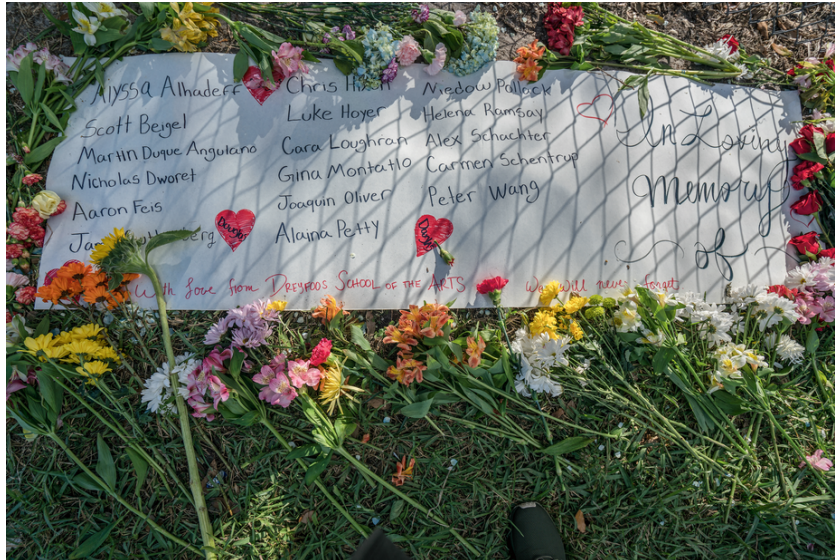 Alyssa Alhadeff
Scott Beigel
Martin Duque Anguiano
Nicholas Dworet
Aaron Feis
Chris Hixon
Luke Hoyer
Cara Loughran
Gina Montalto
Joaquin Oliver
Alaina Petty
Meadow Pollack
Helena Ramsay
Alex Schachter
Carmen Schentrup
Peter Wang
In Loving
Memory
of
With love from DREYFOOS SCHOOL OF THE ARTS We will never forget